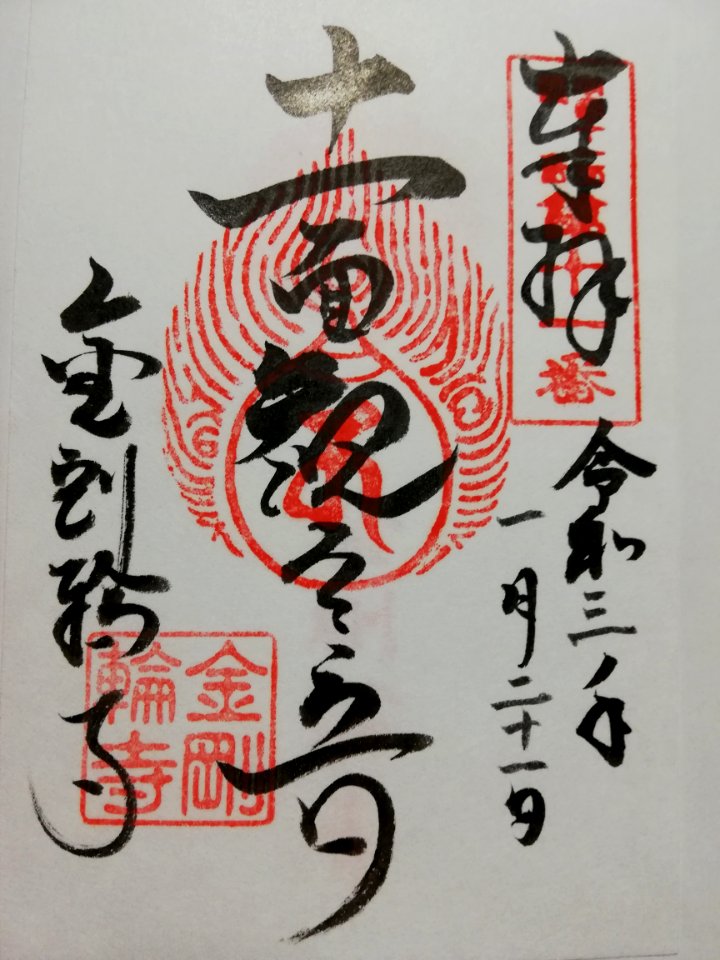 奉拝
番
令和三年
一月二十一日
十一面観
金剛輪寺
金剛
輪寺